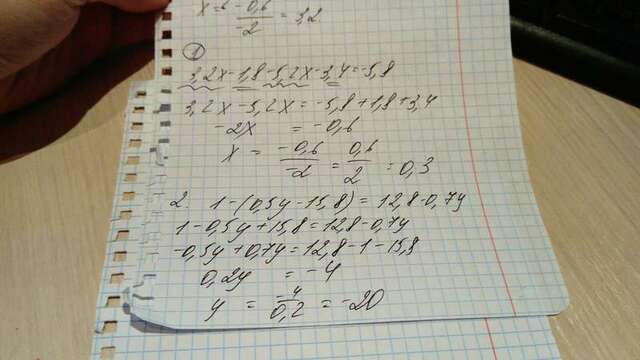 x = -0,6/-2 = 3,2
①
3,2x-1,8-5,2x-3,4=-5,8
3,2x-5,2x=-5,8+1,8+3,4
-2x = -0,6
x = -0,6/-2 = 0,6/2 = 0,3
2. 1-(0,5y-15,8)=12,8-0,7y
1-0,5y+15,8=12,8-0,7y
-0,5y+0,7y=12,8-1-15,8
0,2y = -4
y = -4/0,2 = -20